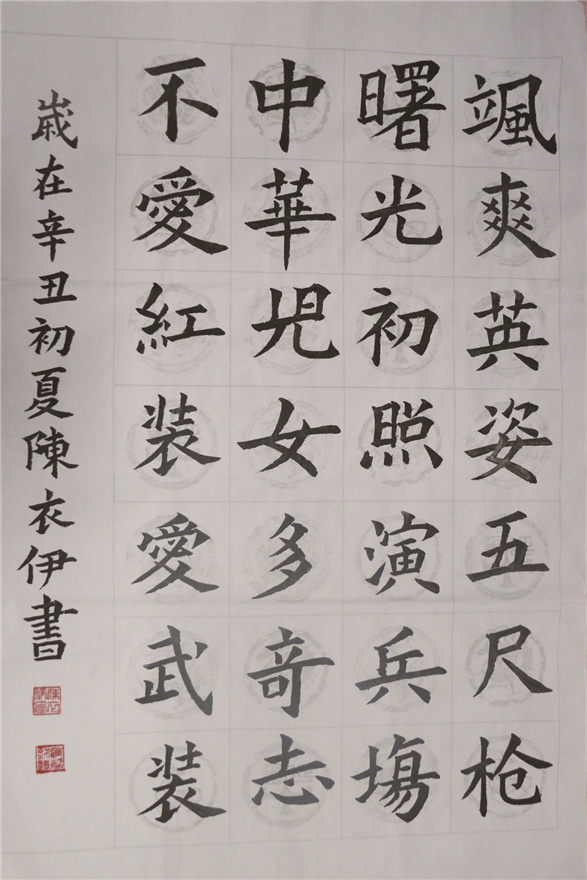 颯爽英姿五尺枪
曙光初照演兵塲
中華児女多奇志
不愛紅装愛武装
歳在辛丑初夏陳衣伊書